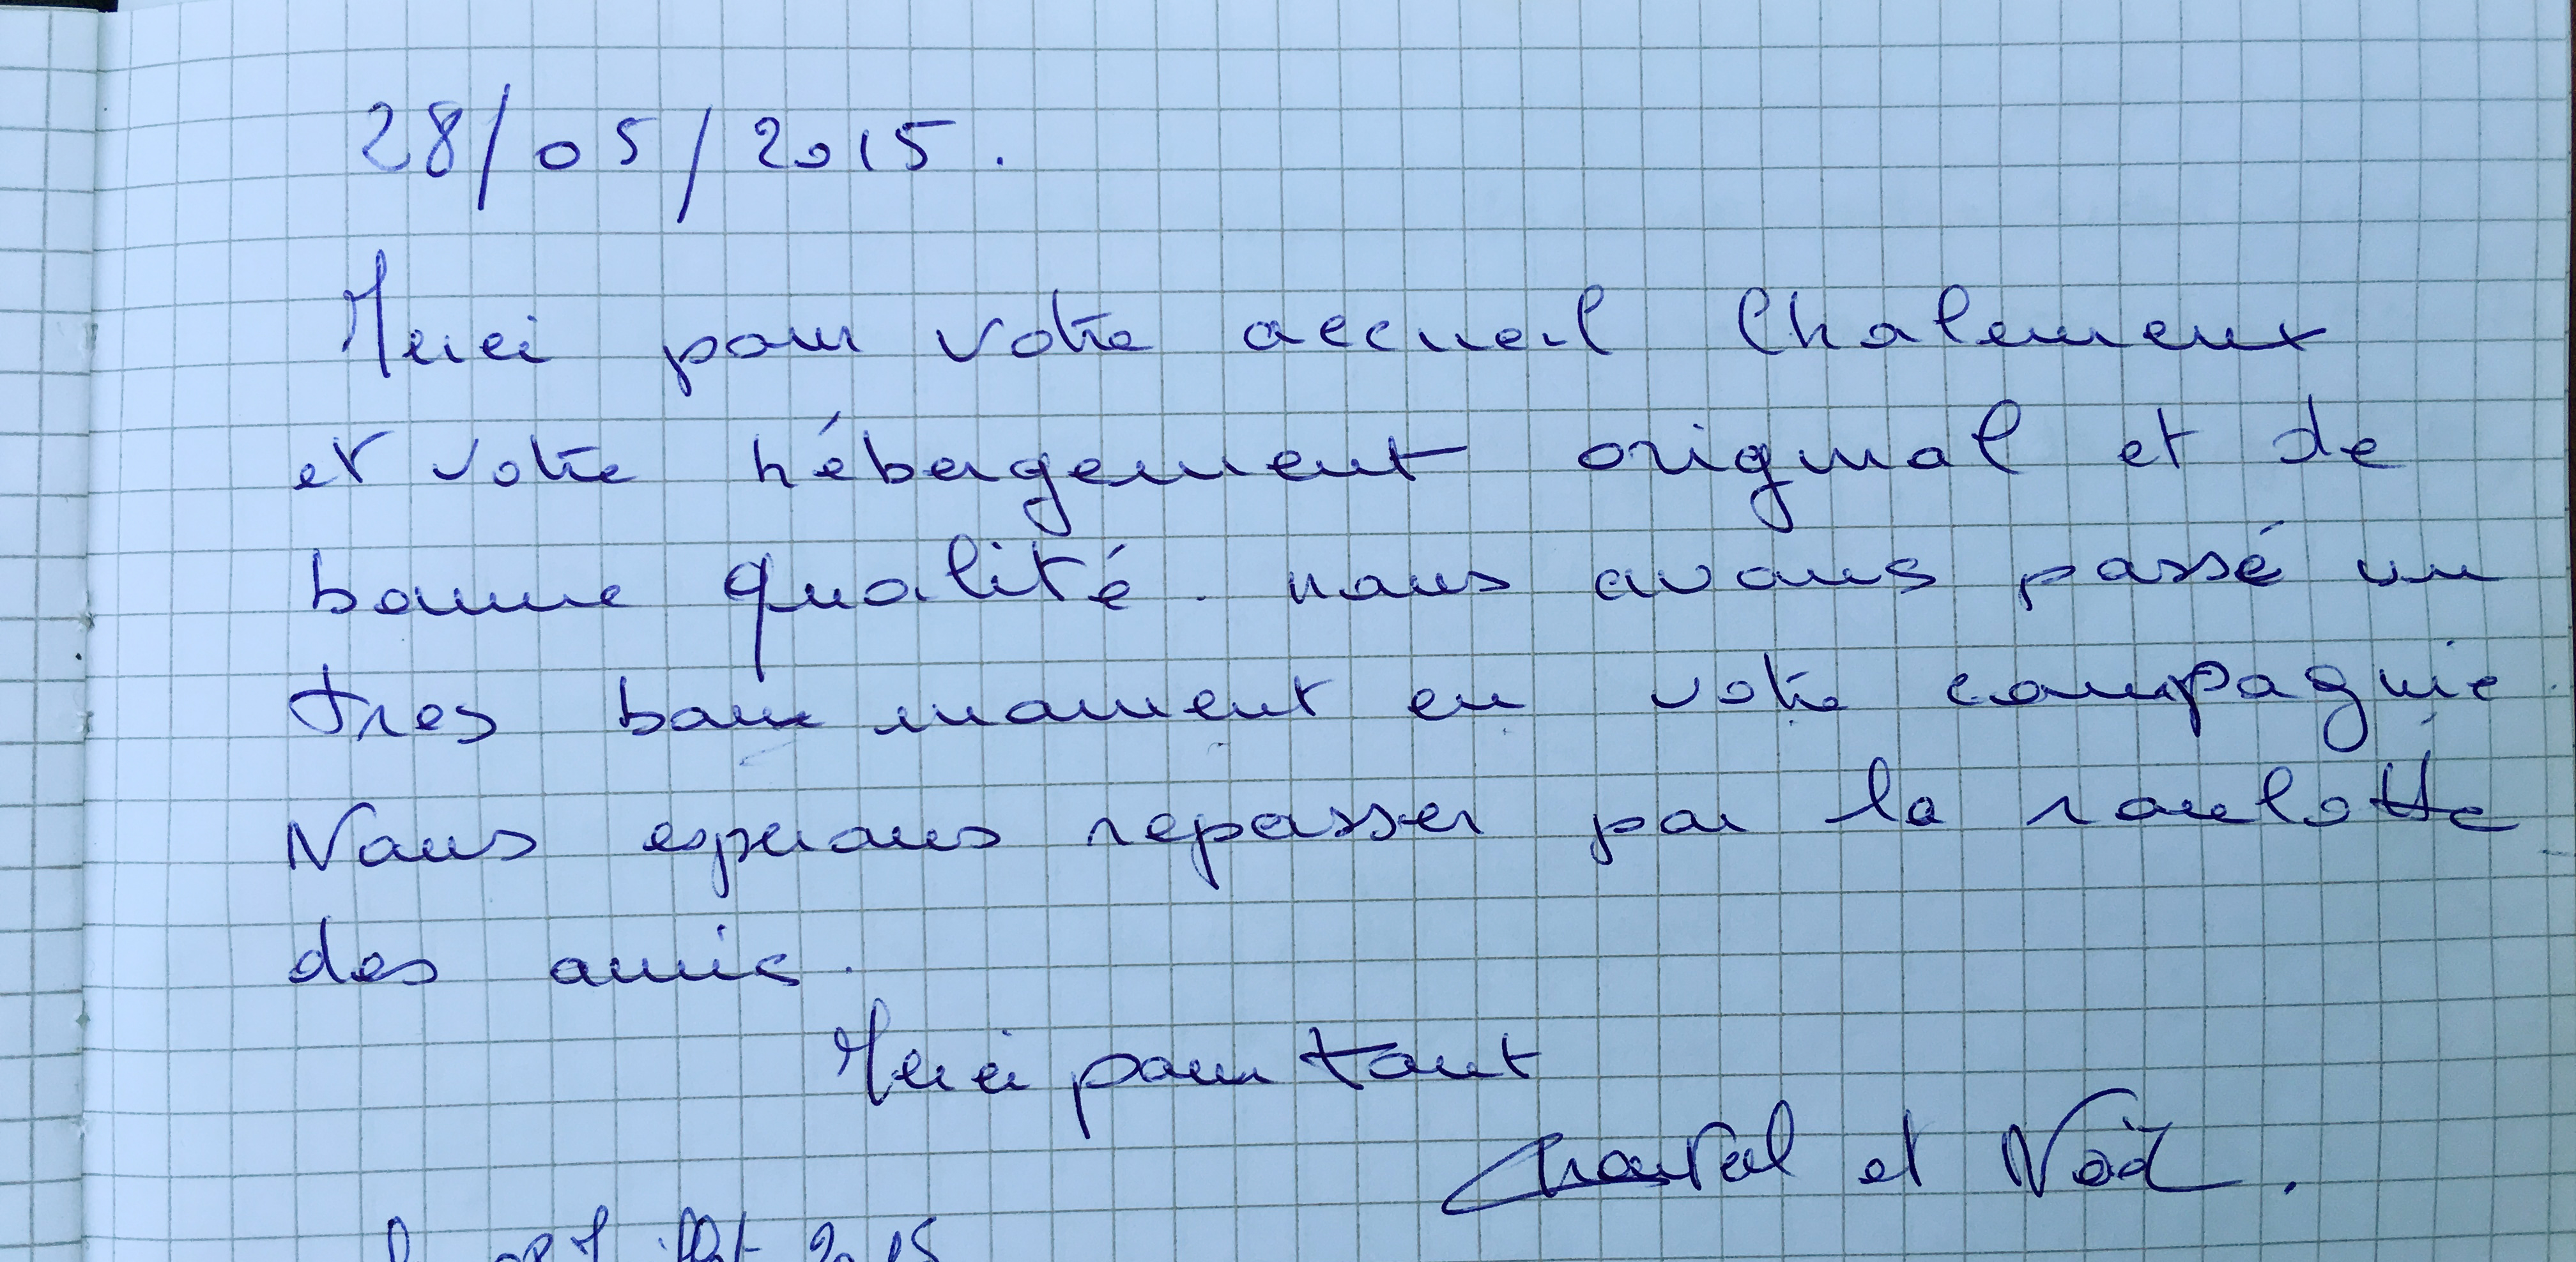 28/05/2015.
Merci pour votre accueil Chalemeux
et votre hébergement original et de
bonne qualité. nous avons passé un
tres bon moment en votre compagnie.
Nous esperons repasser par la roulotte
des amis.
Merci pour tout
Chantal et Noël.
Juillet 2015